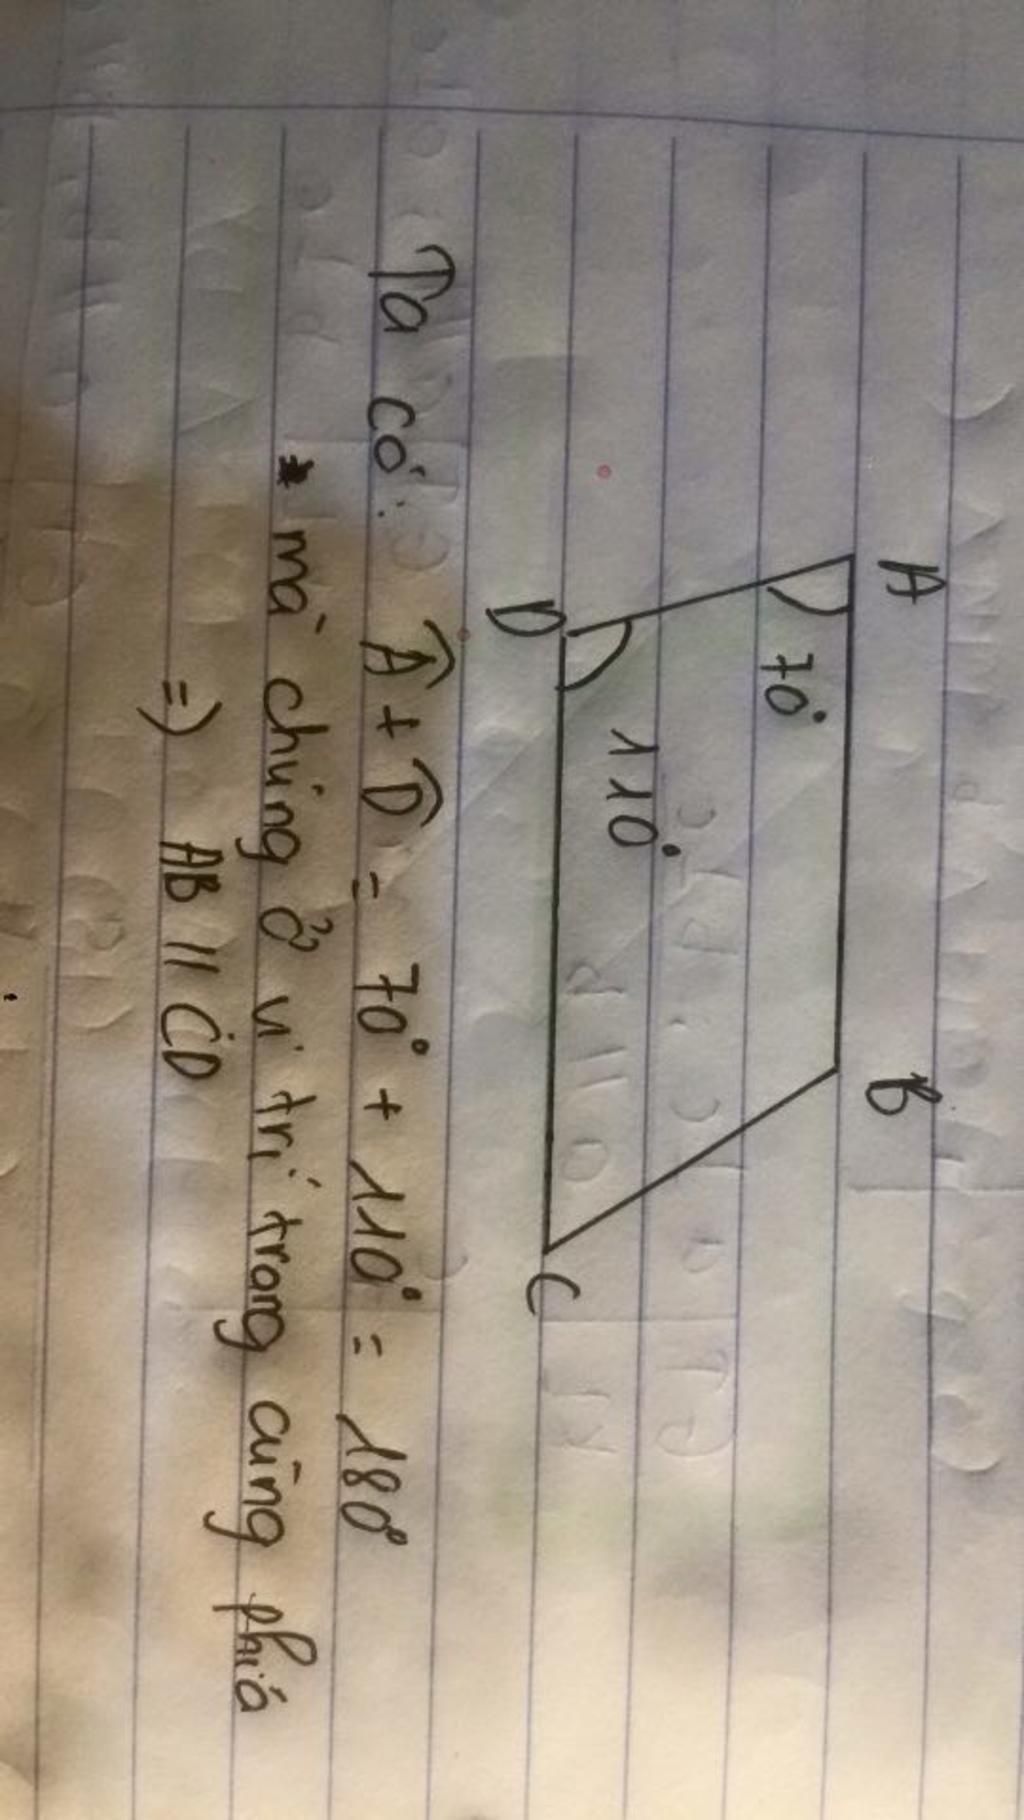 A B
70°
110°
D C
Ta có: Â + D̂ = 70° + 110° = 180°
mà chúng ở vị trí trong cùng phía
=) AB // CD